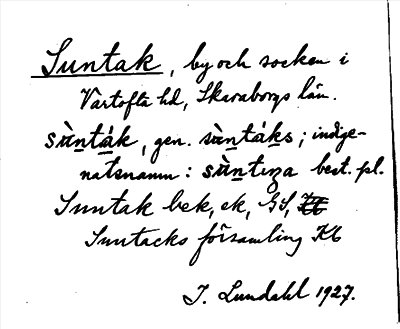 Suntak, by och socken i
Vartofta hd, Skaraborgs län.
sùnták, gen. sùntáks; indge-
natsnamn: sùntıza best. pl.
Suntak bek, ek, GS,
Suntacks församling Kb
I. Lundahl 1927.